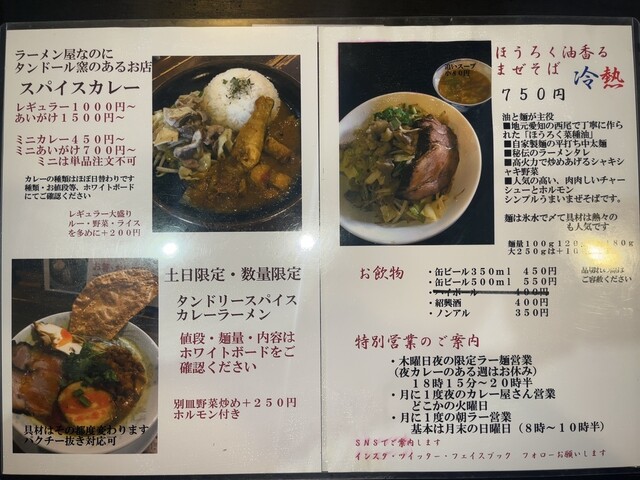 ラーメン屋なのに
タンドール窯のあるお店
スパイスカレー
レギュラー1000円～
あいがけ1500円～
ミニカレー450円～
ミニあいがけ700円～
ミニは単品注文不可
カレーの種類はほぼ日替わりです
種類・お値段等、ホワイトボード
にてご確認ください
レギュラー大盛り
ルー・野菜・ライス
を多めに+200円
土日限定・数量限定
タンドリースパイス
カレーラーメン
値段・麺量・内容は
ホワイトボードをご
確認ください
別皿野菜炒め+250円
ホルモン付き
具材はその都度変わります
パクチー抜き対応可
追いスープ
ほうろく油香る
まぜそば 冷熱
750円
油と麺が主役
■地元愛知の西尾で丁寧に作ら
れた「ほうろく菜種油」
■自家製麺の平打ち中太麺
■秘伝のラーメンタレ
■高火力で炒めあげるシャキシ
ャキ野菜
■人気の高い、肉肉しいチャー
シューとホルモン
シンプルうまいまぜそばです。
麺は氷水で〆て具材は熱々の
も人気です
麺量100g120
大250gは+
ご容赦ください
お飲物
・缶ビール350ml 450円
・缶ビール500ml 550円
・ハイボール 400円
・紹興酒 400円
・ノンアル 350円
特別営業のご案内
・木曜日夜の限定ラー麺営業
（夜カレーのある週はお休み）
18時15分～20時半
・月に1度夜のカレー屋さん営業
どこかの火曜日
・月に1度の朝ラー営業
基本は月末の日曜日（8時～10時半）
SNSでご案内します
インスタ・ツイッター・フェイスブック フォローお願いします